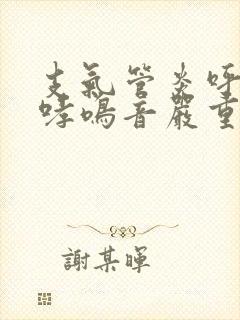 支氣管炎呼
哮鳴音嚴重
謝某暉